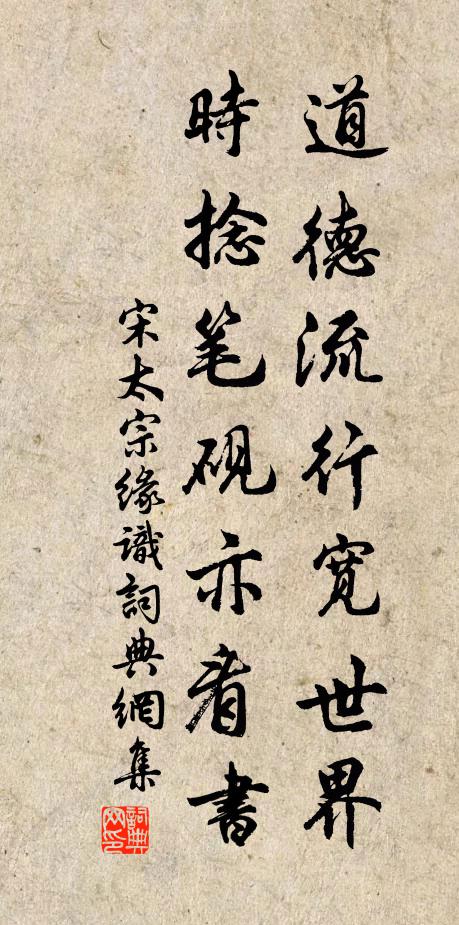 道德流行宽世界
時捻笔砚亦看書
宋太宗缘識詞典網集
詞典网印